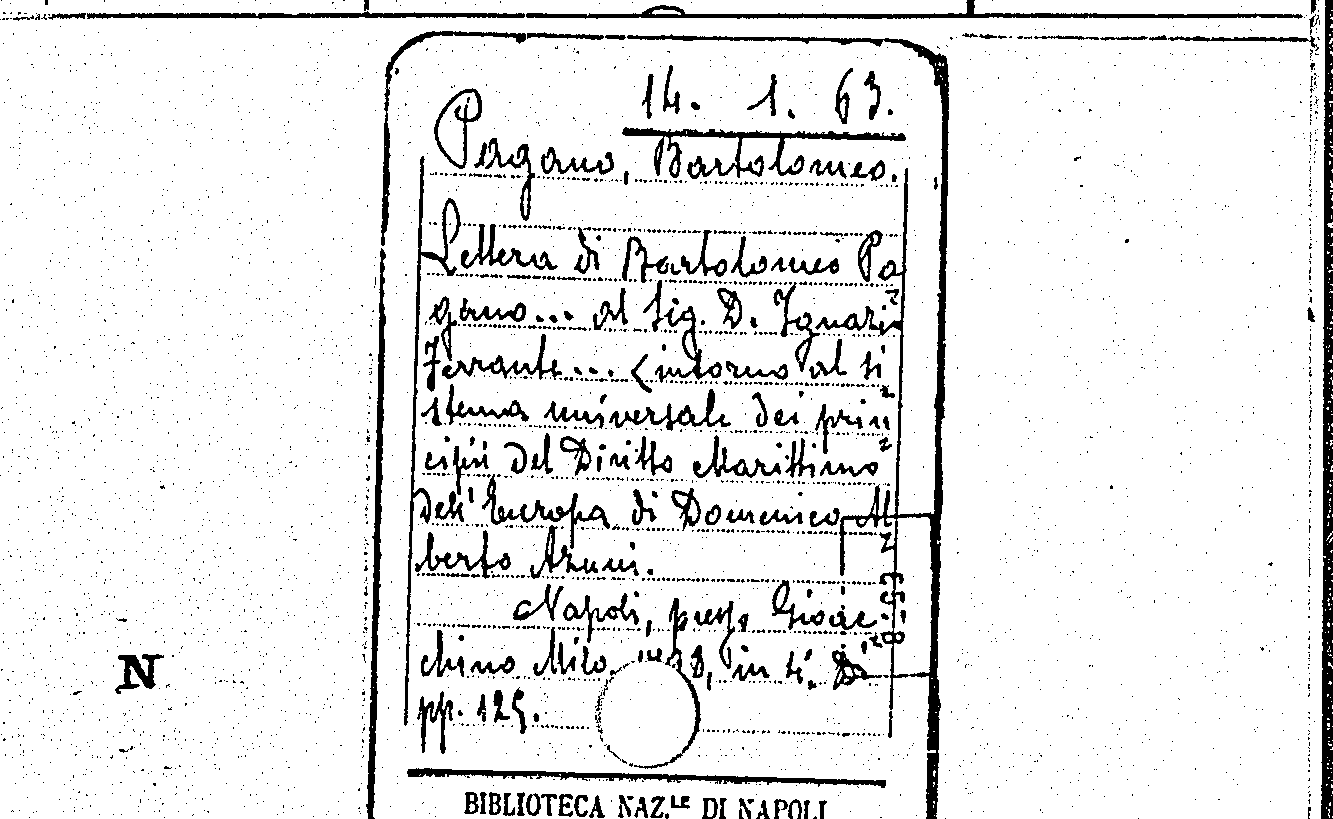 14. 1. 63.
Pagano, Bartolomeo.
Lettera di Bartolomeo Pa
gano... al Sig. D. Ignazi
Ferrante... < intorno al si
stema universale dei prin
cipii del Diritto Marittimo
dell'Europa di Domenico Al
berto Azuni.
Napoli, press. Gioac
chino Milo, in
pp. 125.
N
BIBLIOTECA NAZ.LE DI NAPOLI